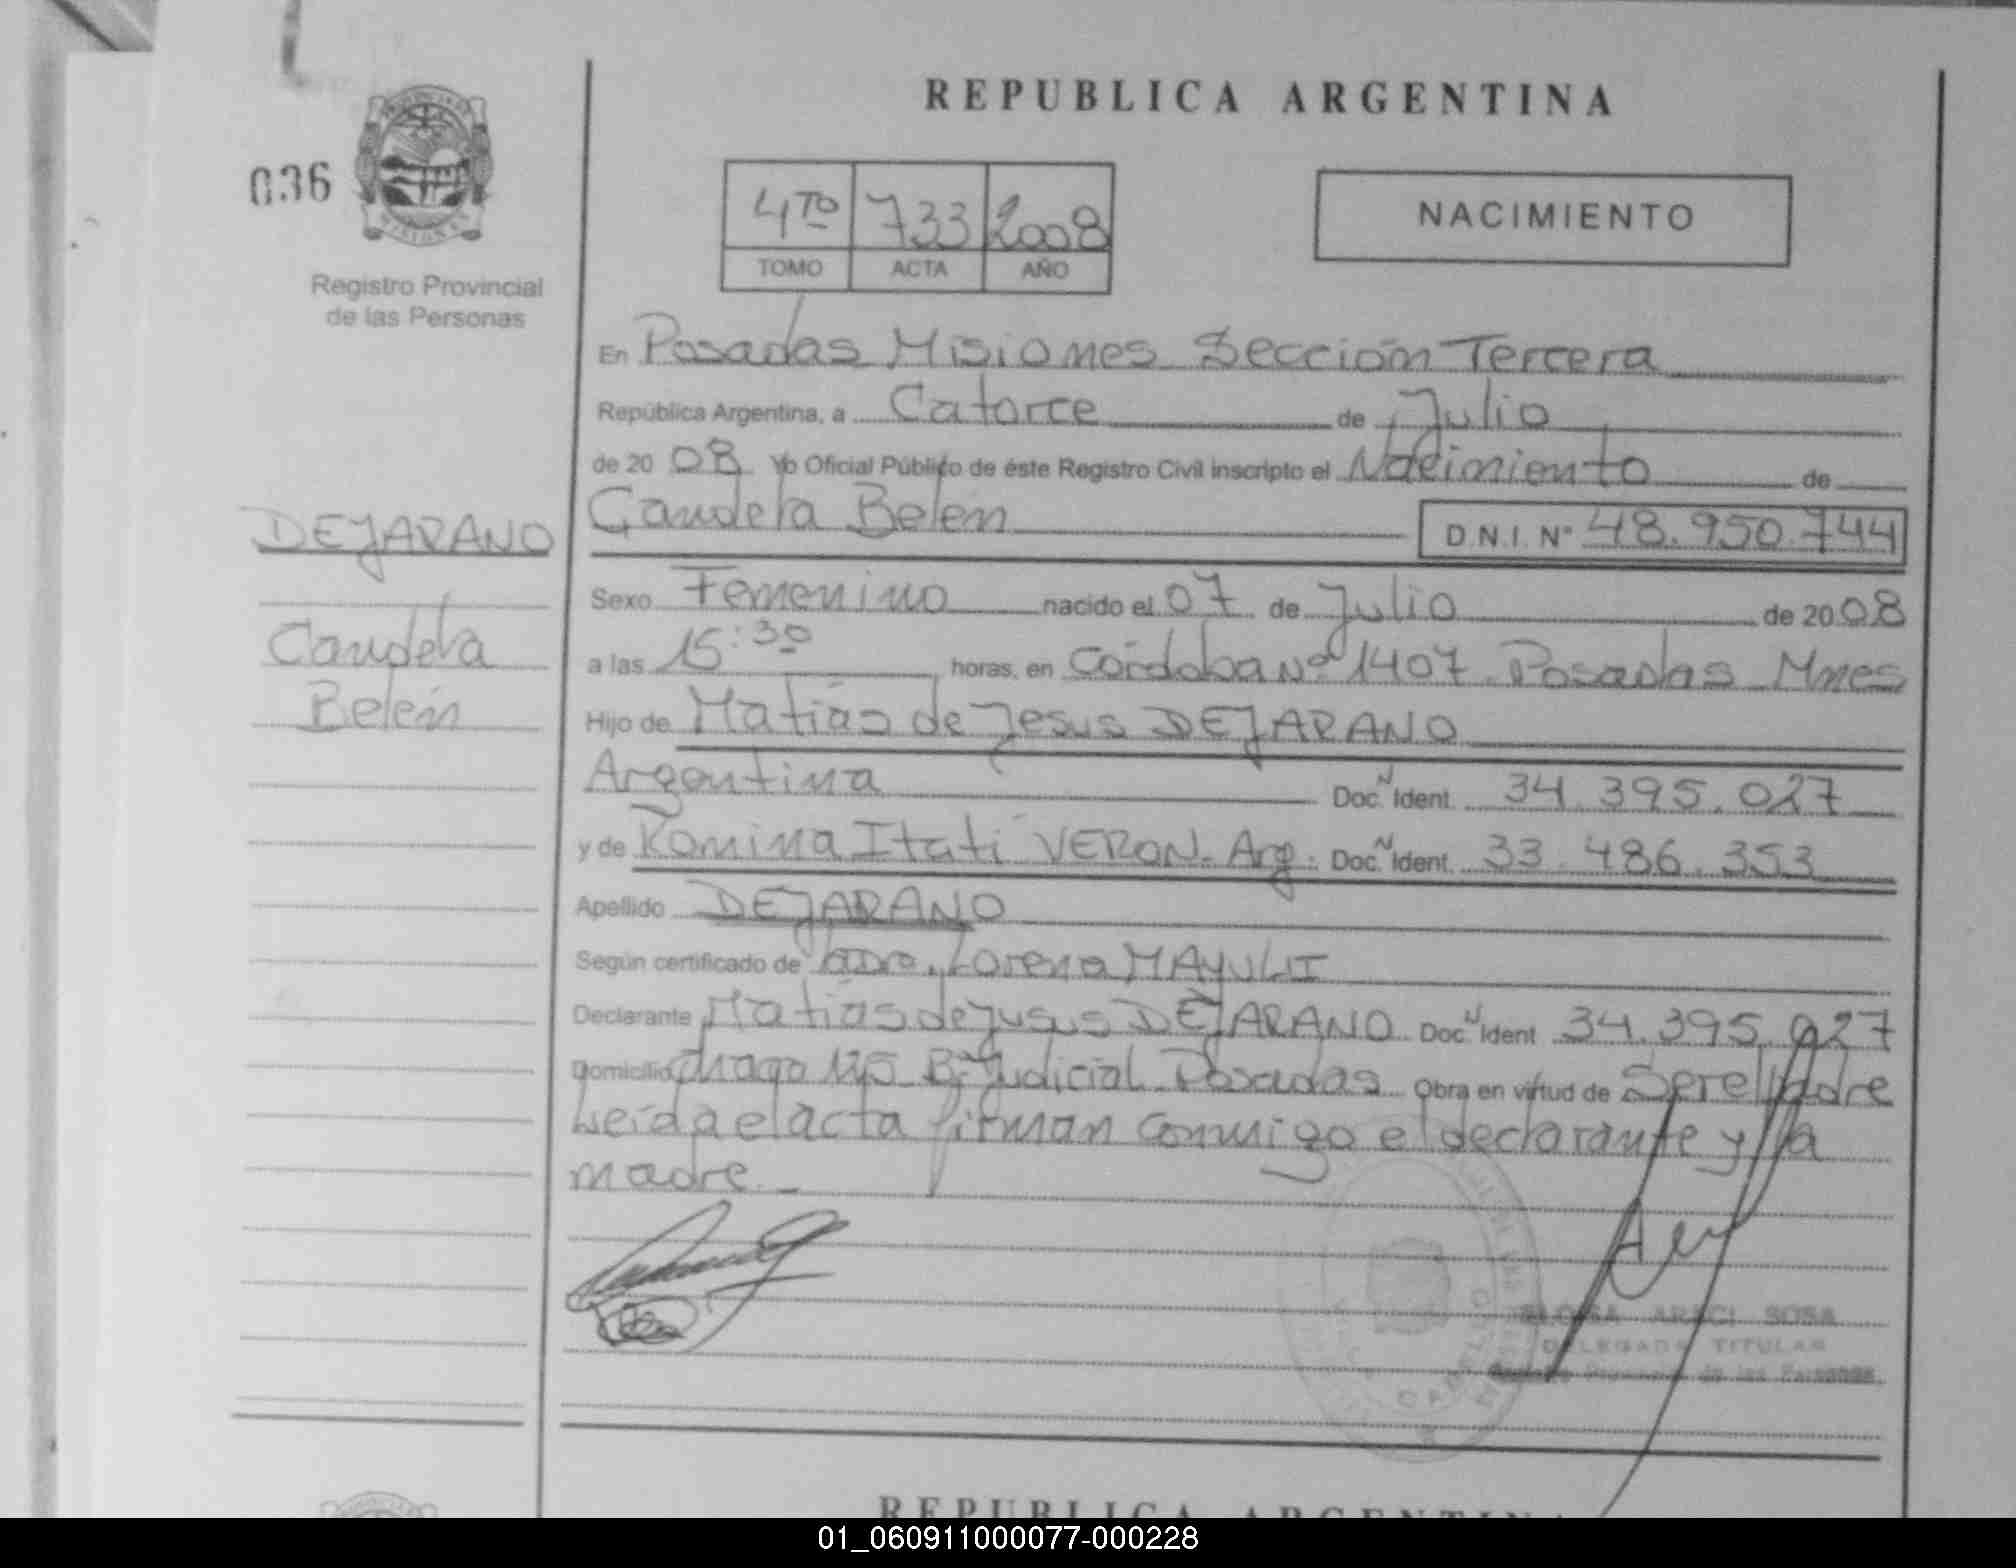 REPUBLICA ARGENTINA
036
4TO 733 2008
TOMO ACTA AÑO
NACIMIENTO
Registro Provincial
de las Personas
En Posadas Misiones Sección Tercera
República Argentina, a Catorce de Julio
de 20 08 Yo Oficial Público de éste Registro Civil inscripto el Nacimiento de
Candela Belén D.N.I. Nº 48.950.744
DEJARANO
Candela
Belén
Sexo Femenino nacido el 07 de Julio de 20 08
a las 15:30 horas, en Córdoba Nº 1407 Posadas Mnes
Hijo de Matías de Jesus DEJARANO
Argentina Doc. Ident. 34.395.027
y de Romina Itati VERON. Arg. Doc. Ident. 33.486.353
Apellido DEJARANO
Según certificado de Lorena
Declarante Matías de Jesus DEJARANO Doc. Ident 34.395.027
Domicilio 125 Bº Judicial Posadas Obra en virtud de Ser el padre
Leída el acta firman conmigo el declarante y la
madre.
ELOISA ARECI SOSA
DELEGADA TITULAR
Registro Provincial de las Personas
REPUBLICA ARGENTINA
01_060911000077-000228